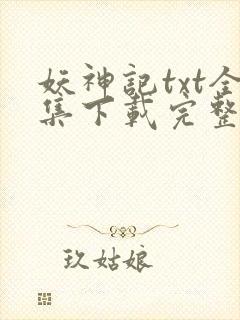 妖神記txt全
集下載完整
玖姑娘